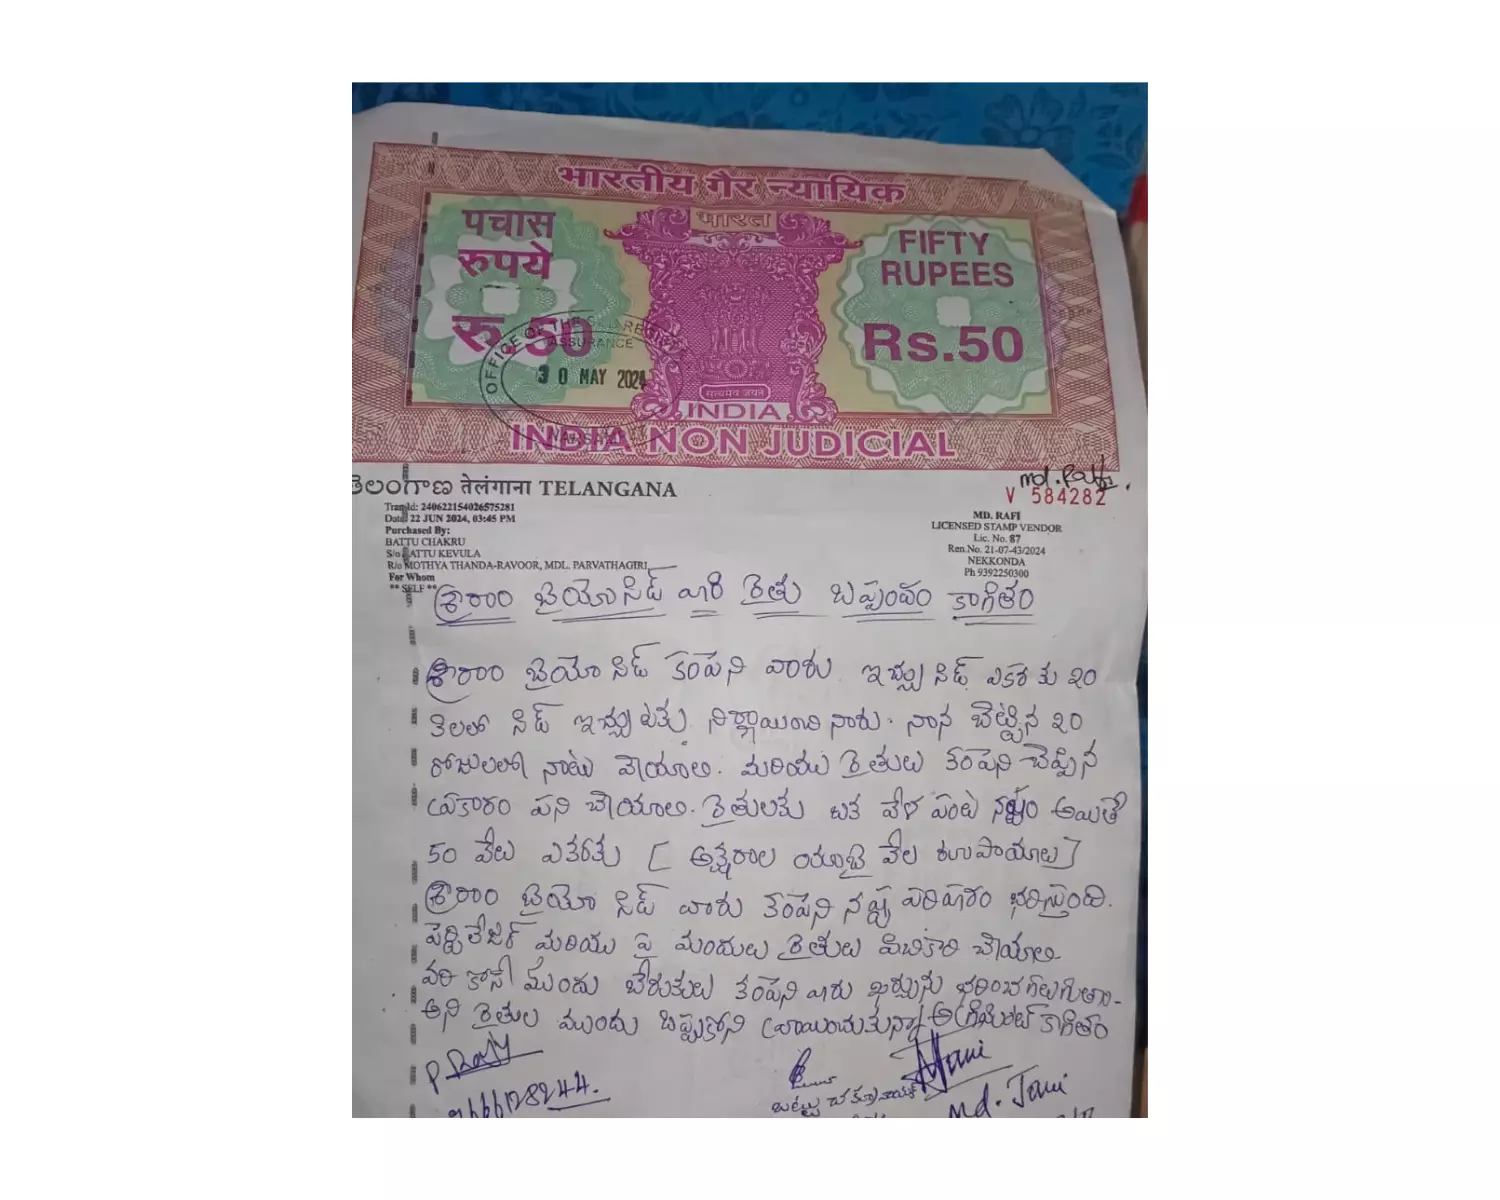 भारतीय गैर न्यायिक
भारत
पचास
रुपये
रु.50
FIFTY
RUPEES
Rs.50
OFFICE OF THE
ASSURANCE
30 MAY 2024
सत्यमेव जयते
INDIA
INDIA NON JUDICIAL
తెలంగాణ तेलंगाना TELANGANA
Tran Id: 240622154026575281
Date: 22 JUN 2024, 03:45 PM
Purchased By:
BATTU CHAKRU
S/o BATTU KEVULA
R/o MOTHYA THANDA-RAVOOR, MDL. PARVATHAGIRI
For Whom
** SELF **
md. Rafi
V 584282
MD. RAFI
LICENSED STAMP VENDOR
Lic. No. 87
Ren.No. 21-07-43/2024
NEKKONDA
Ph 9392250300
శ్రీరాం బైయో సిడ్ వారి రైతు ఒప్పందం కాగితం
శ్రీరాం బైయో సిడ్ కంపెని వారు ఇచ్చు సిడ్ ఎకరకు 20
కిలలో సిడ్ ఇచ్చుటకు నిర్ణాయించినారు. నాన బెట్టిన 20
రోజులలో నాటు వేయాలి. మరియు రైతులు కంపెని చెప్పిన
ప్రకారం పని చేయాలి. రైతులకు ఒక వేళ పంట నష్టం అయితే
50 వేలు ఎకరకు [ అక్షరాల యాబై వేల రూపాయాలు ]
శ్రీరాం బైయో సిడ్ వారు కంపెని నష్ట పరిహారం భరిస్తుంది.
పెర్టిలేజర్ మరియు పై మందులు రైతులు పిచికారి చేయాలి
వరి కోసే ముందు బేరుకులు కంపెని వారు ఖర్చును భరించగలుగుతారు
అని రైతుల ముందు ఒప్పుకోని వ్రాయించుకున్న అగ్రిమెంట్ కాగితం
బట్టు చక్రునాయక్
Md. Jani